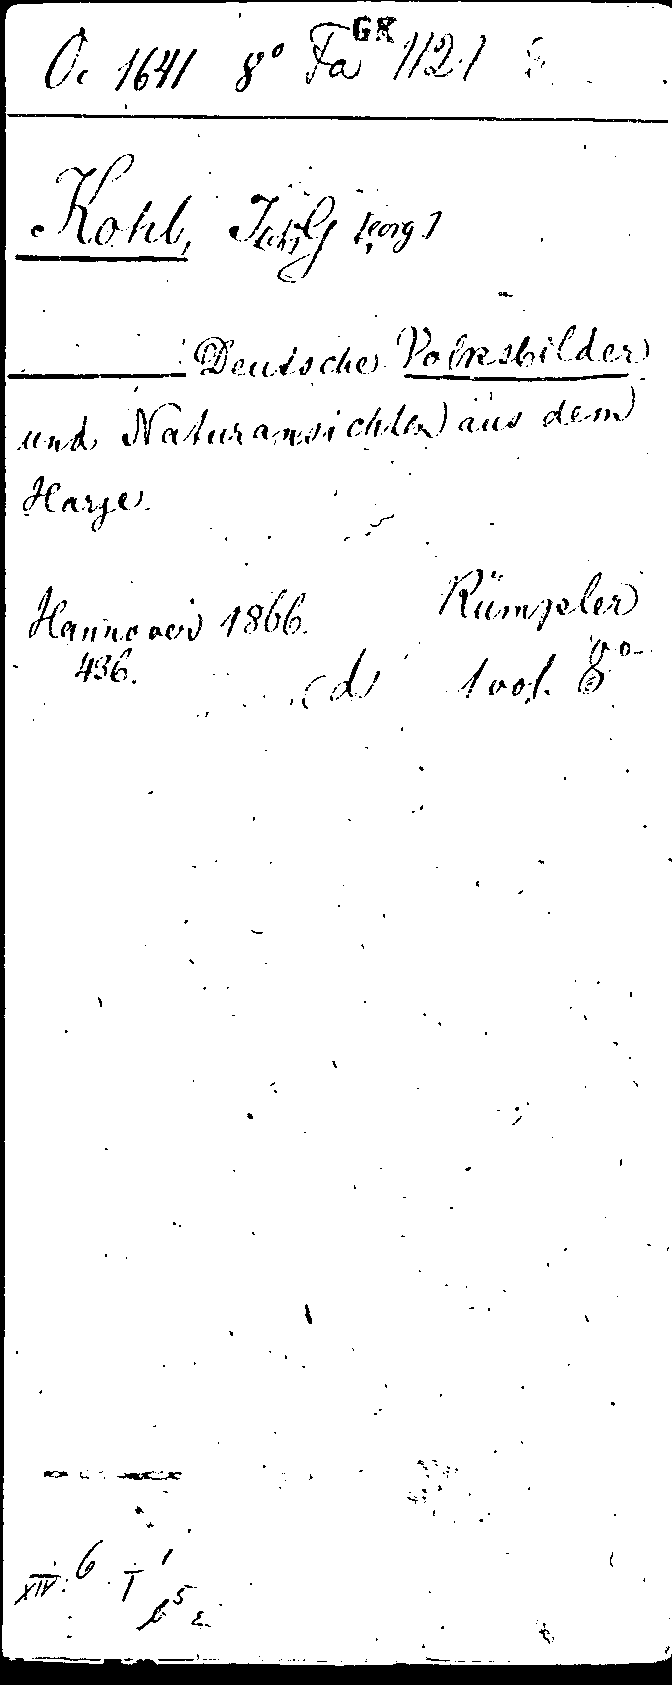 Oc 1641 8° Fa GK 1121
Kohl, Joh. G[eorg]
Deutsche Volksbilder
und Naturansichten aus dem
Harze.
Hannover 1866. Rümpler
436.
1 vol. 8°
XIV. 6 T 1